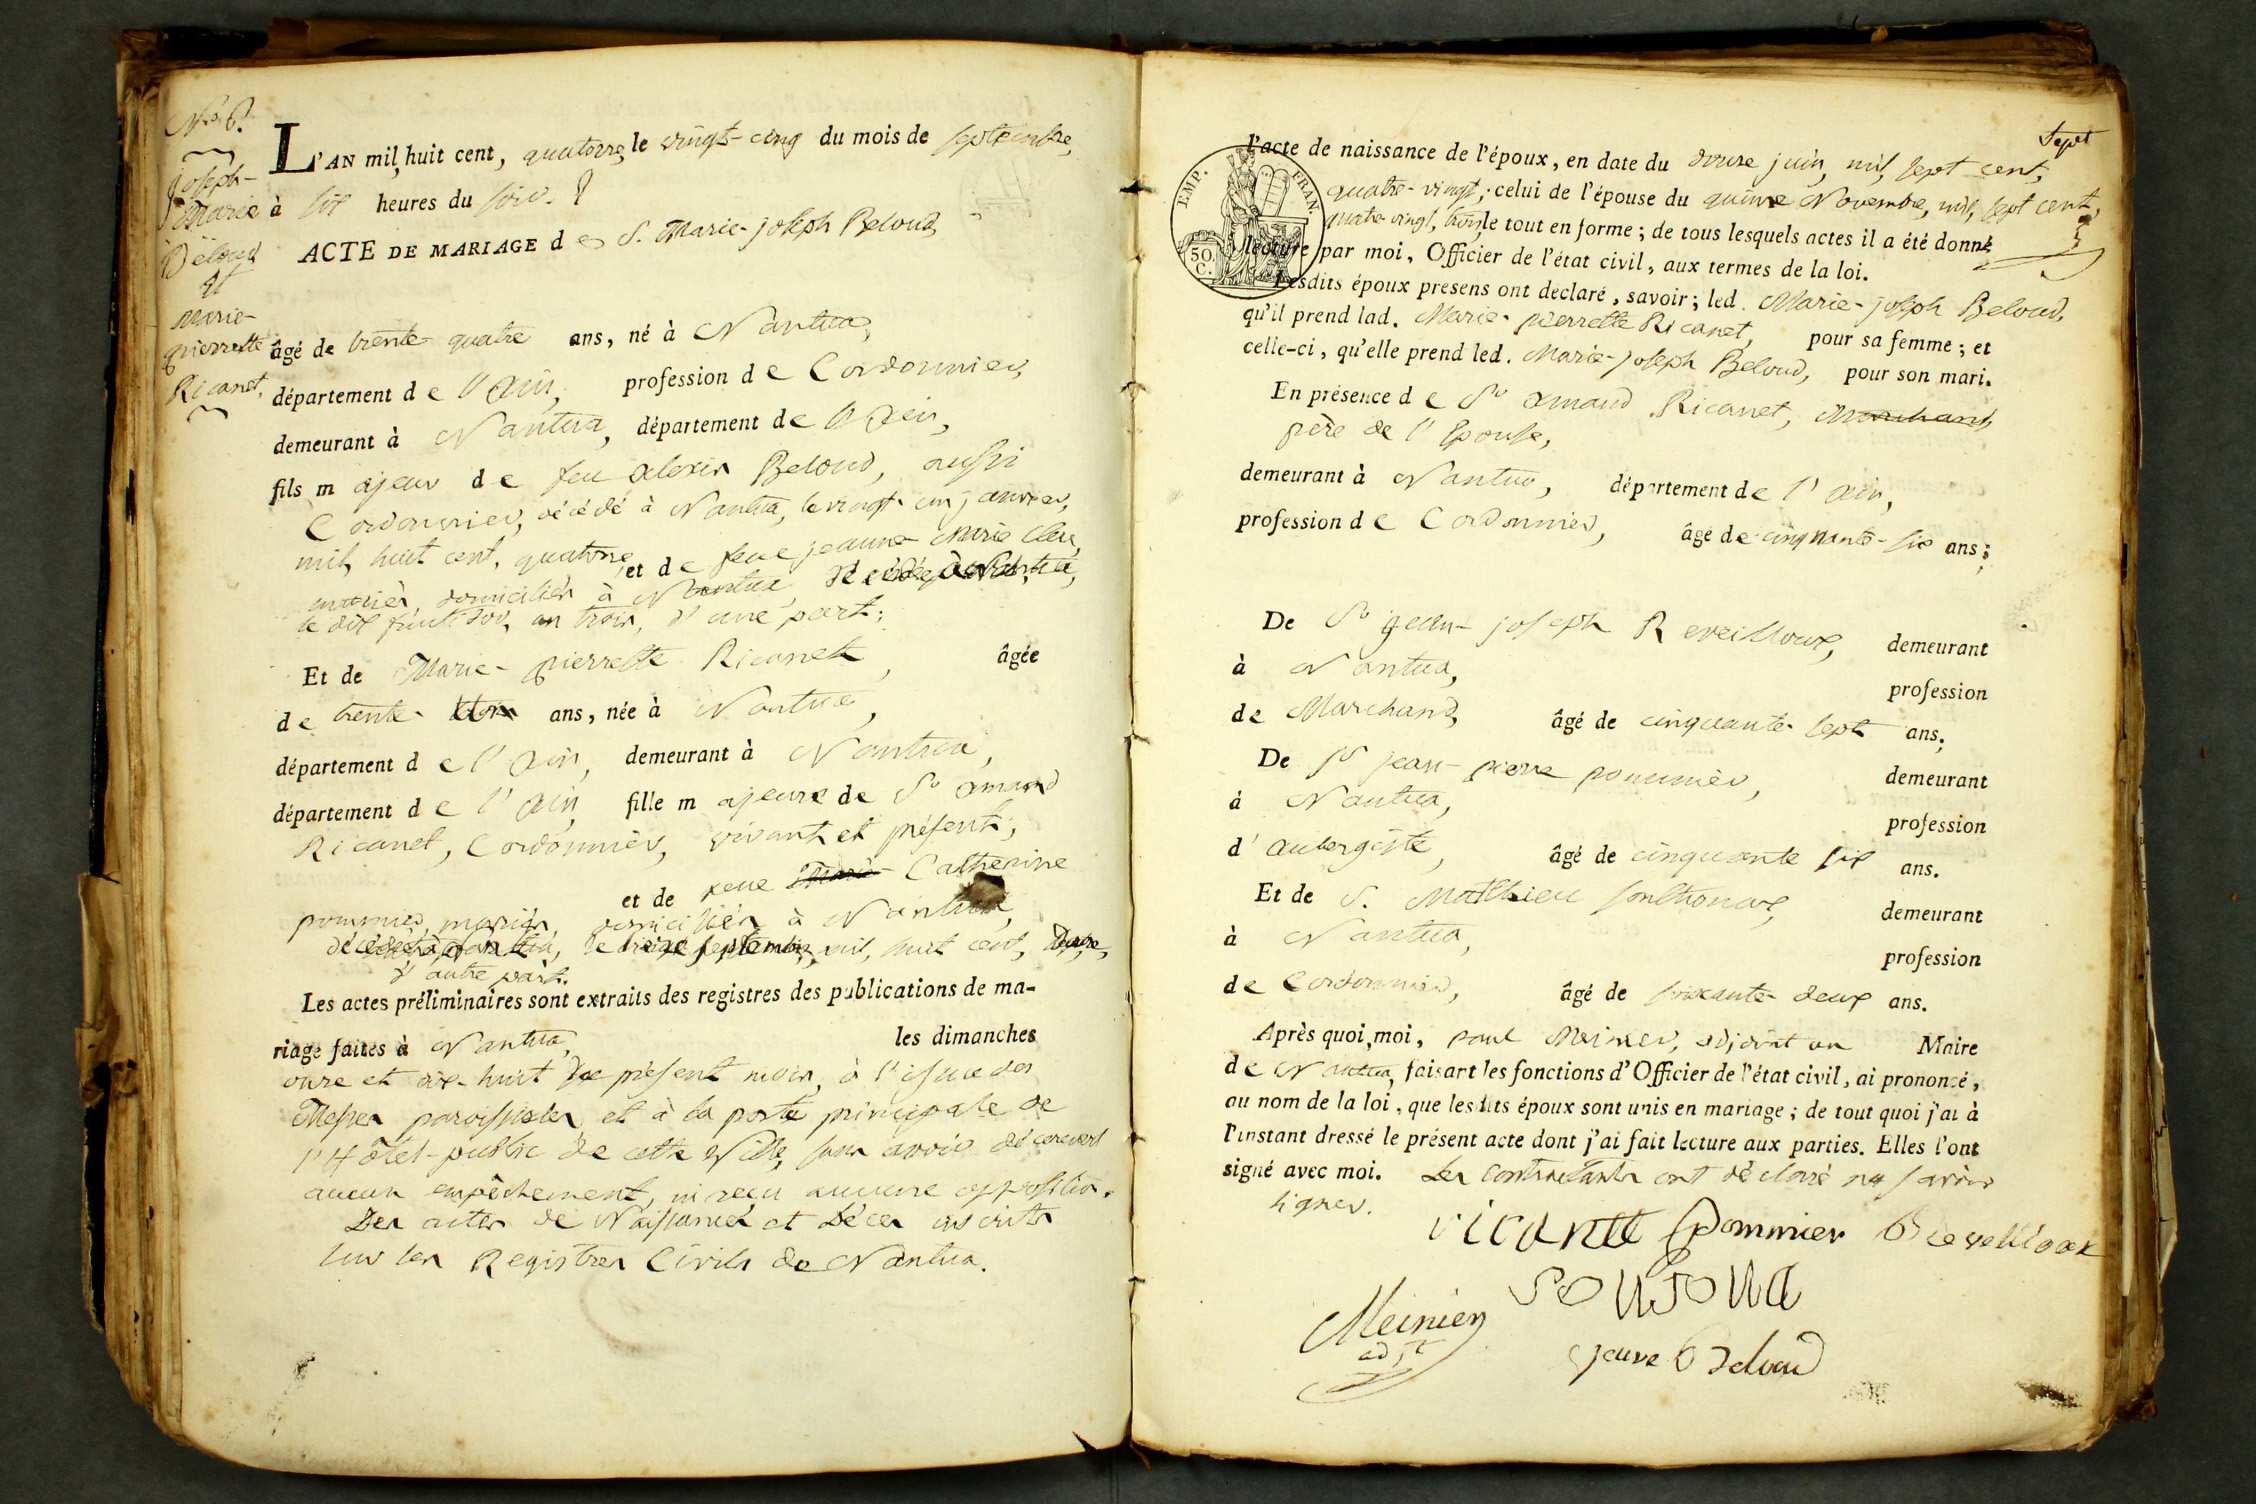 N.° 6.
joseph-
Marie
Beloud
et
marie-
pierrette
Ricanet.
L'AN mil huit cent, quatorze, le vingt-cinq du mois de septembre,
à six heures du soir.
ACTE DE MARIAGE de S. Marie-joseph Beloud,
âgé de trente-quatre ans, né à Nantua,
département de l'Ain, profession de Cordonnier,
demeurant à Nantua, département de l'Ain,
fils majeur de feu alexis Beloud, aussi
Cordonnier, décédé à Nantua, le vingt-un janvier,
mil huit cent, quatorze, et de feue jeanne Marie Clerc,
mariés, domiciliés à Nantua, décédée à Nantua,
le dix fructidor, an trois, d'une part;
Et de Marie-pierrette Ricanet, âgée
de trente- ans, née à Nantua,
département de l'Ain, demeurant à Nantua,
département de l'Ain, fille majeure de Sr amand
Ricanet, Cordonnier, vivant et présent;
et de feue Marie Catherine
pommier, mariés, domiciliés à Nantua,
décédée à Nantua, le treize septembre, mil, huit cent,
d'autre part.
Les actes préliminaires sont extraits des registres des publications de ma-
riage faites à Nantua, les dimanches
onze et dix-huit du présent mois, à l'issue des
Messes paroissiales et à la porte principale de
l'Hôtel-public de cette Ville, sans avoir découvert
aucun empêchement, ni reçu aucune opposition.
Des actes de Naissances et Décès inscrits
sur les Registres Civils de Nantua.
Sept
EMP. FRAN.
50 C.
l'acte de naissance de l'époux, en date du douze juin, mil, sept cent,
quatre-vingt; celui de l'épouse du quinze Novembre, mil, sept cent,
quatre vingt, trois, le tout en forme; de tous lesquels actes il a été donné
lecture par moi, Officier de l'état civil, aux termes de la loi.
Lesdits époux presens ont declaré, savoir; led. Marie-joseph Beloud,
qu'il prend lad. Marie-pierrette Ricanet, pour sa femme; et
celle-ci, qu'elle prend led. Marie-joseph Beloud, pour son mari.
En présence de Sr amand Ricanet, Marchand,
père de l'Epouse,
demeurant à Nantua, département de l'Ain,
profession de Cordonnier, âgé de cinquante-six ans;
De Sr jean-joseph Reveilloux, demeurant
à Nantua, profession
de Marchand, âgé de cinquante-sept ans;
De Sr jean-pierre pommier, demeurant
à Nantua, profession
d'aubergiste, âgé de cinquante six ans.
Et de S. Matthieu demeurant
à Nantua, profession
de Cordonnier, âgé de soixante-deux ans.
Après quoi, moi, paul Meinier, adjoint au Maire
de Nantua, faisant les fonctions d'Officier de l'état civil, ai prononcé,
au nom de la loi, que lesdits époux sont unis en mariage; de tout quoi j'ai à
l'instant dressé le présent acte dont j'ai fait lecture aux parties. Elles l'ont
signé avec moi. Les contractants ont déclaré ne savoir
signer.
ricanet pommier Reveilloux
Meinier
adjt
jeune Beloud